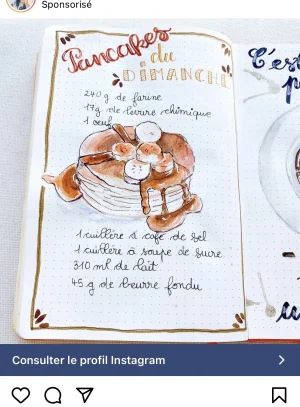 Sponsorisé
Pancakes
du
DIMANCHE
240 g de farine
17g de levure chimique
1 oeuf
C'est
1 cuillère à café de sel
1 cuillère à soupe de sucre
310 ml de lait
45 g de beurre fondu
Consulter le profil Instagram